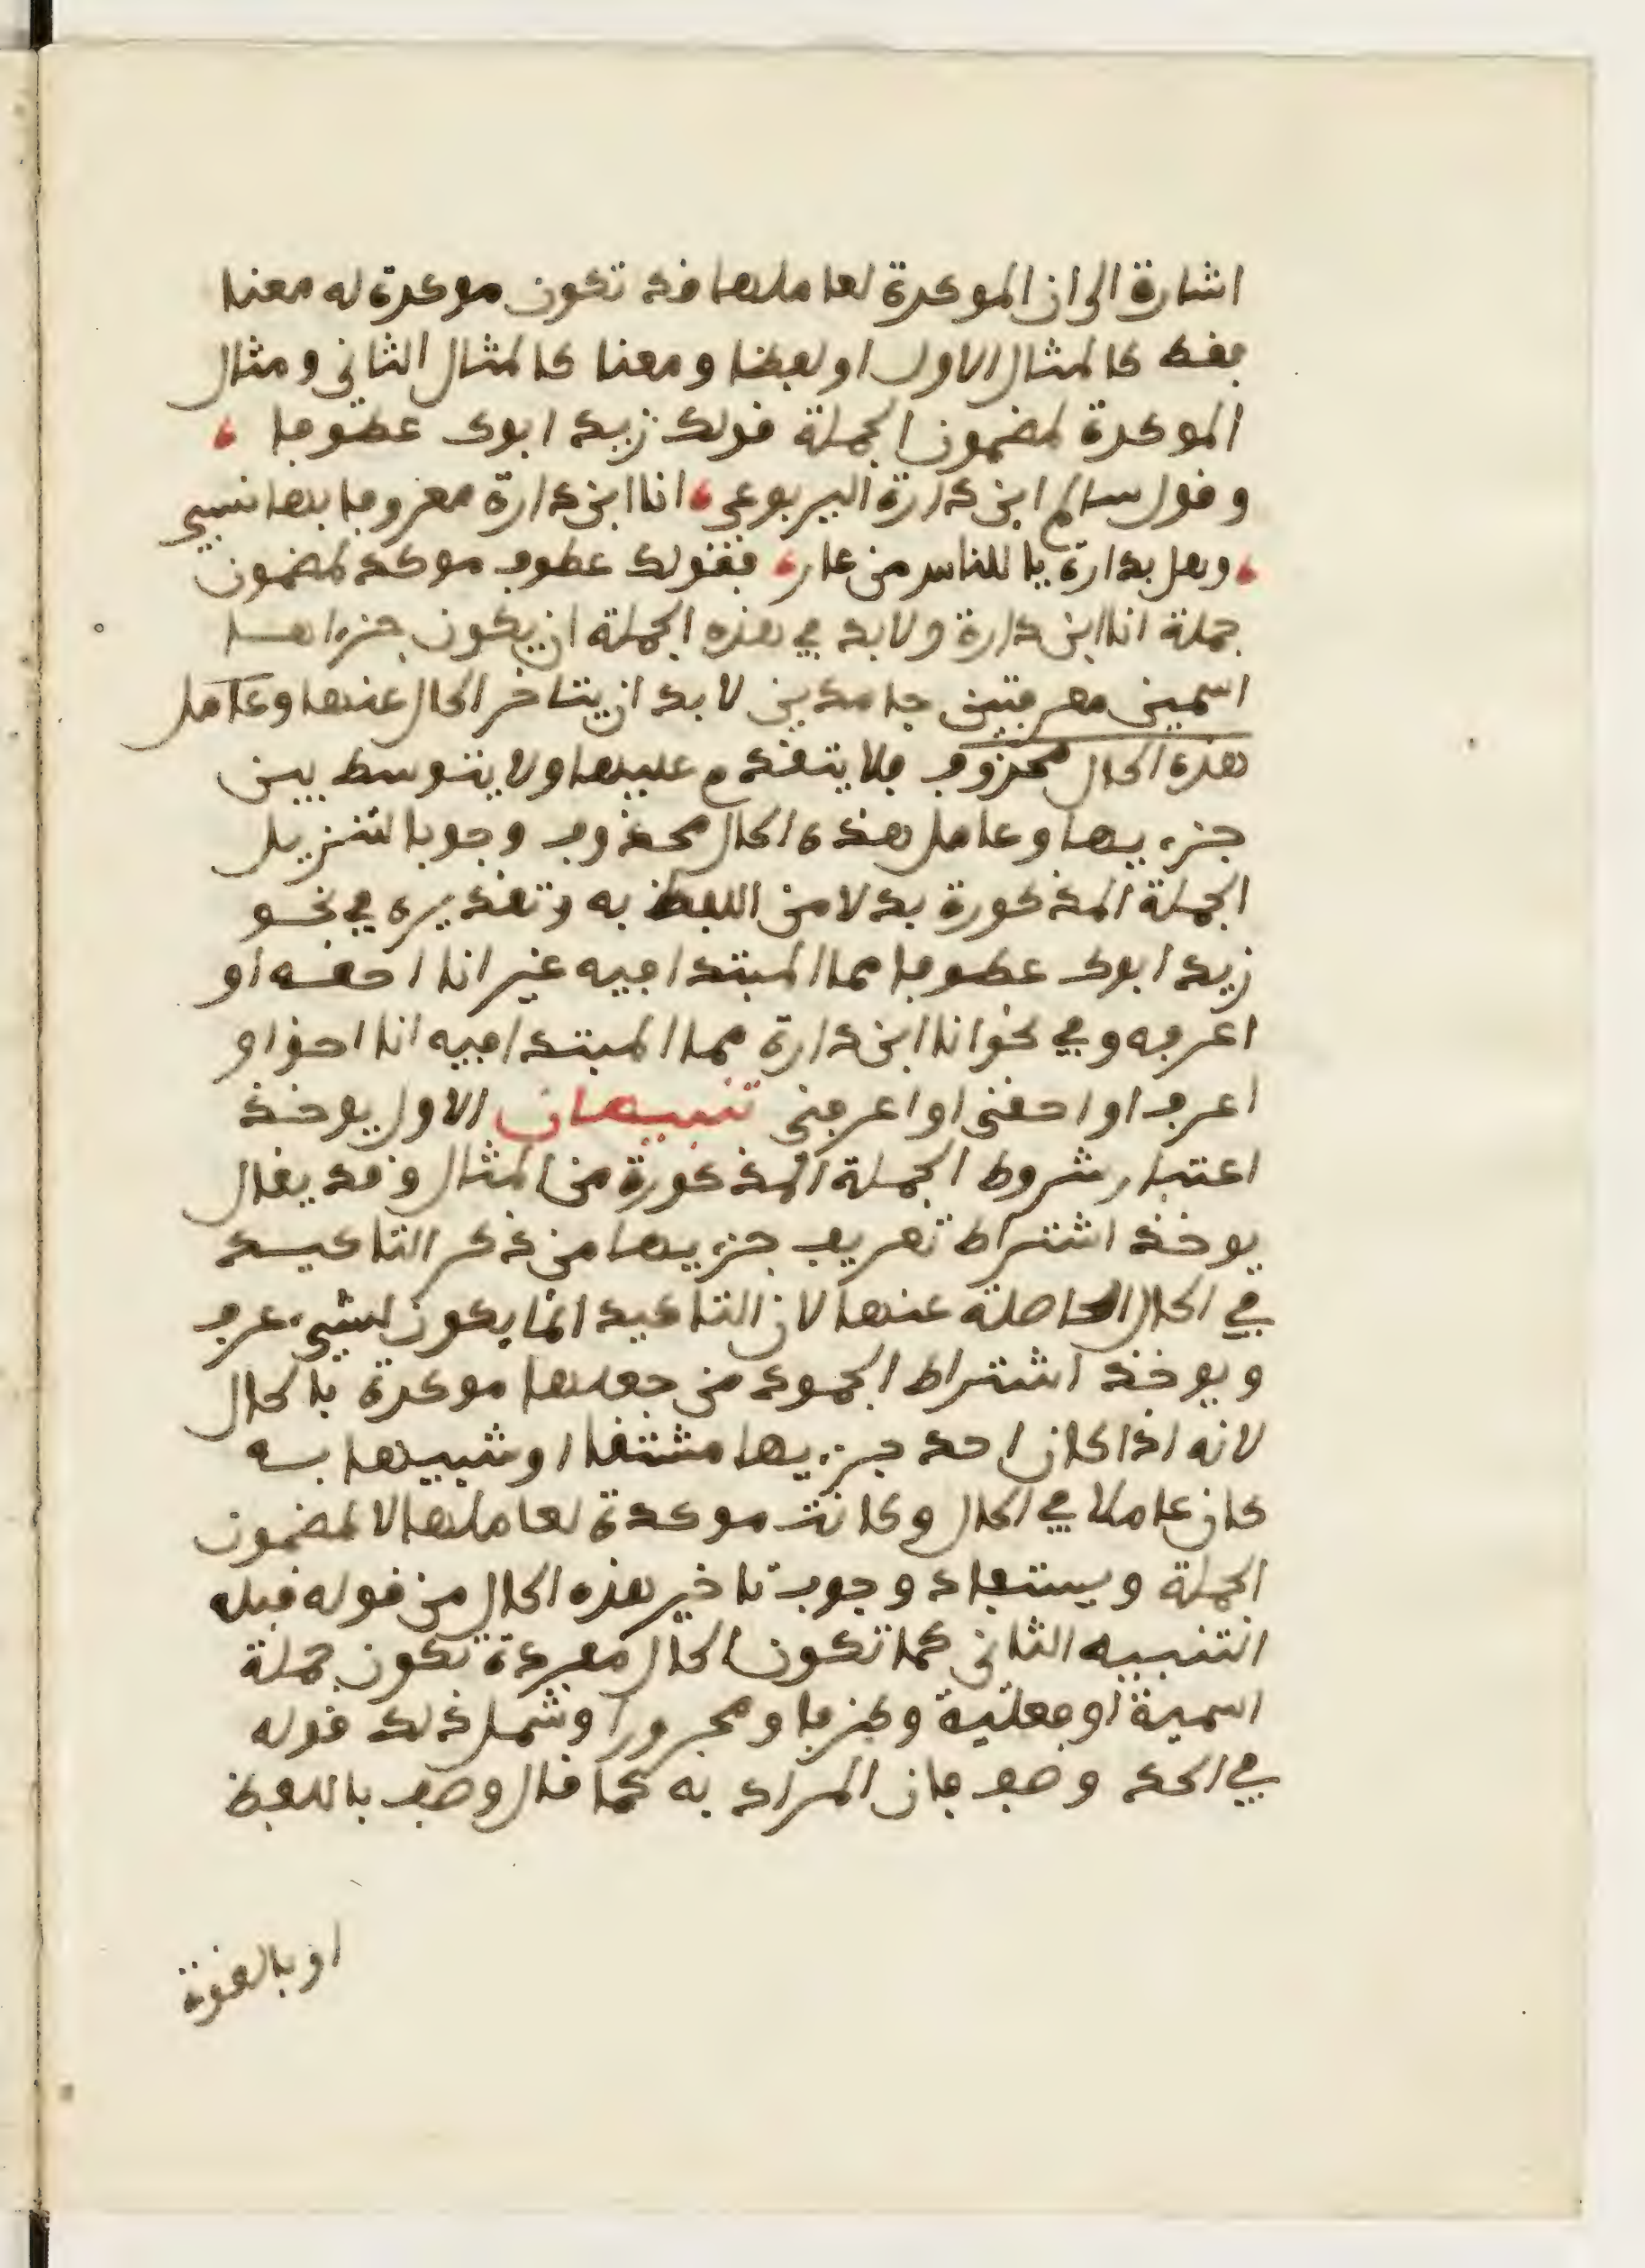 اشارة الى ان الموكدة لعاملها قد تكون موكدة له معنا
فقط كالمثال الاول او لفظا ومعنا كالمثال الثاني ومثال
الموكدة لمضمون الجملة قولك زيد ابوك عطوفا ،
وقول سالم ابن دارة اليربوعي ، انا ابن دارة معروفا بها نسبي
، وهل بدارة يا للناس من عار ، فقولك عطوف موكد لمضمون
جملة انا ابن دارة ولا بد في هذه الجملة ان يكون جزءاها
اسمين معرفتين جامدين لا بد ان يتاخر الحال عنها وعامل
هذه الحال محذوف فلا يتقدم عليها ولا يتوسط بين
جزءيها وعامل هذه الحال محذوف وجوبا لتنزيل
الجملة المذكورة بدلا من اللفظ به وتقديره في نحو
زيد ابوك عطوفا مما المبتدا فيه غير انا احقه او
اعرفه وفي نحو انا ابن دارة مما المبتدا فيه انا احق او
اعرف او احقني او اعرفني تنبيهان الاول يوخذ
اعتبار شروط الجملة المذكورة من المثال وقد يقال
يوخذ اشتراط تعريف جزءيها من ذكر التاكيد
في الحال الحاصلة عنها لان التاكيد انما يكون لشيء عرف
ويوخذ اشتراط الجمود من جعلها موكدة بالحال
لانه اذا كان احد جزءيها مشتقا او شبيها به
كان عاملا في الحال وكانت موكدة لعاملها لا لمضمون
الجملة ويستفاد وجوب تاخير هذه الحال من قوله قبله
التنبيه الثاني كما تكون الحال مفردة تكون جملة
اسمية او فعلية وظرفا ومجرورا وشمل ذلك قوله
في الحد وصف فان المراد به كما قال وصف باللفظ
او بالقوة